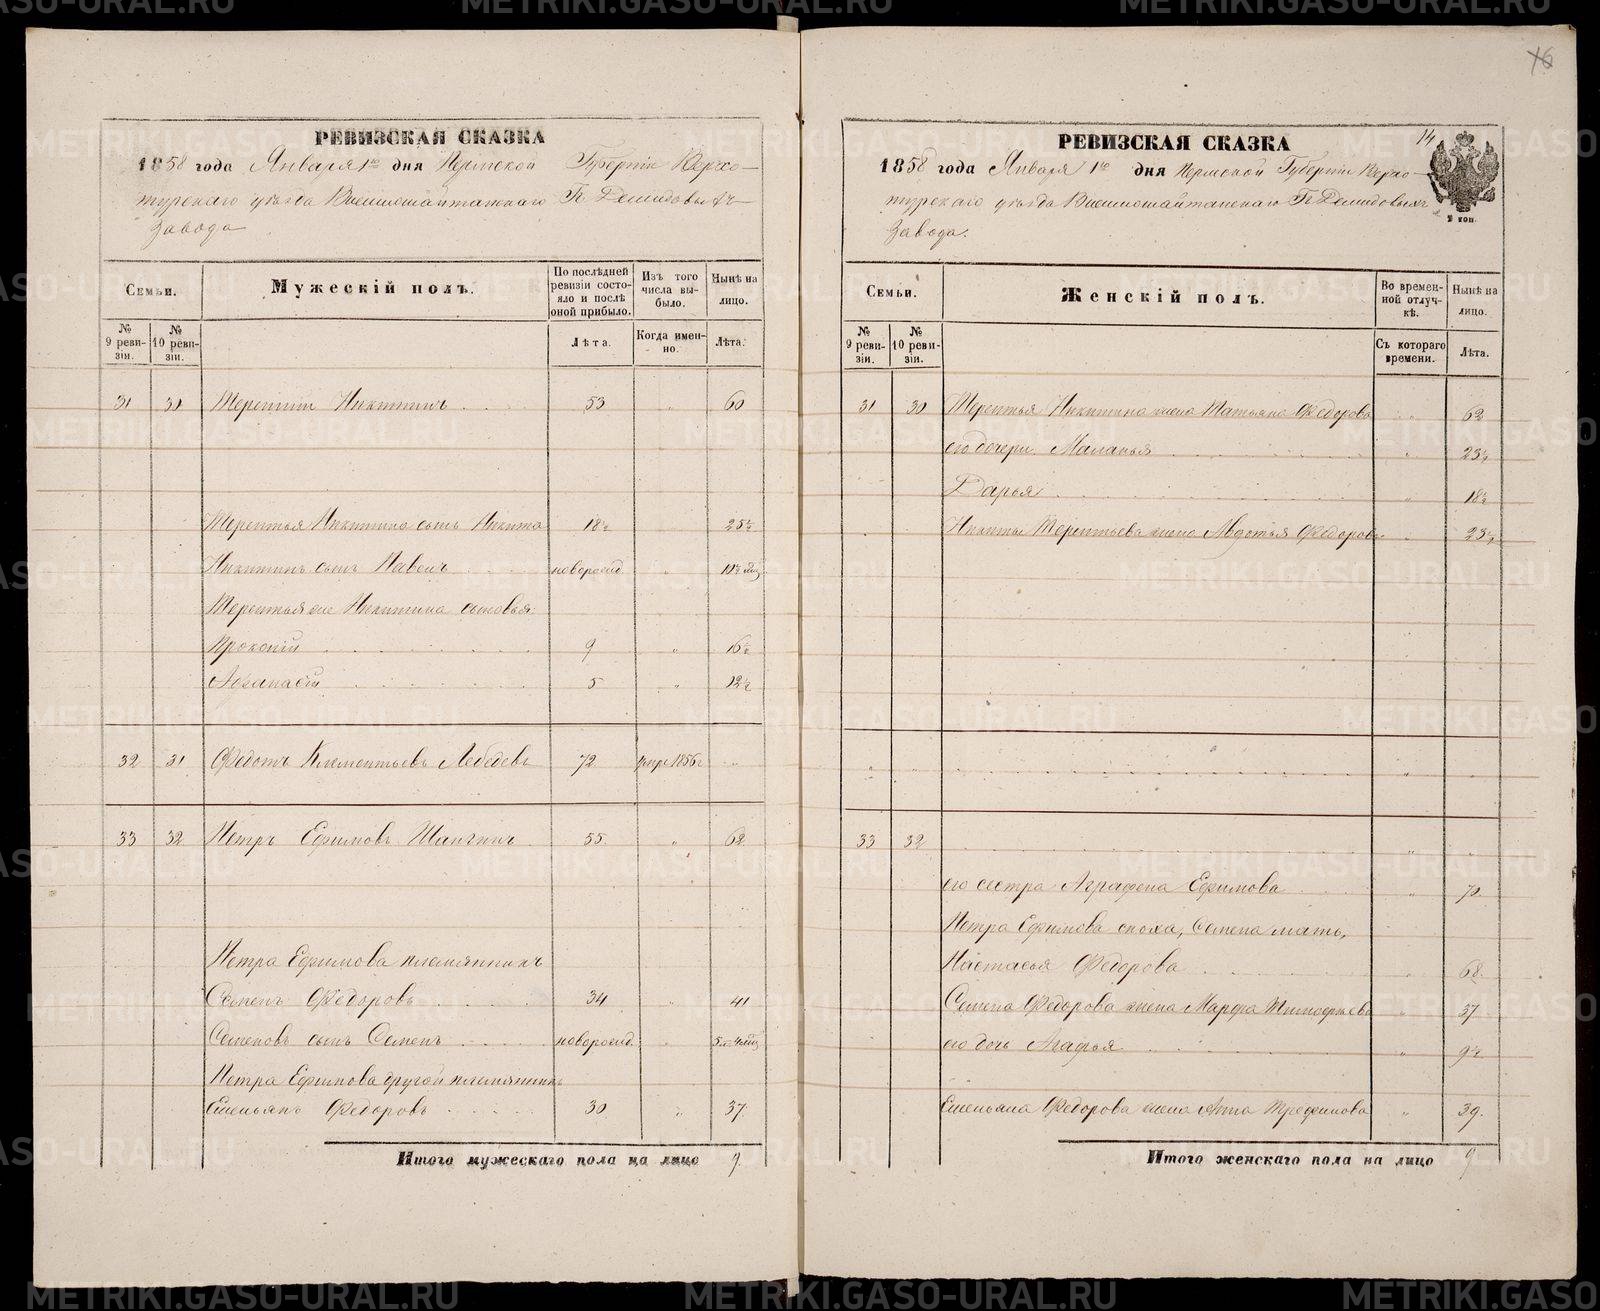 РЕВИЗСКАЯ СКАЗКА
1858 года Января 1го дня Пермской Губернiи Верхо-
турскаго уѣзда Висимошайтанскаго Гг. Демидовыхъ
Завода
Семьи.
Мужескiй полъ.
По послѣдней ревизiи состо-
яло и послѣ оной прибыло.
Изъ того числа вы-
было.
Нынѣ на лицо.
№ 9 реви-
зiи.
№ 10 реви-
зiи.
Лѣта.
Когда имен-
но.
Лѣта.
31 30 Терентiй Никитинъ 53 " 60
Терентья Никитина сынъ Никита 18½ 25½
Никитинъ сынъ Павелъ новорожд.
Терентья же Никитина сыновья:
Прокопiй 9 " 16½
Афанасiй 5 " 12½
32 31 Федотъ Клементьевъ Лебедевъ 72 умре 1856 г "
33 32 Петръ Ефимовъ 55 " 62
Петра Ефимова племянникъ
Семенъ Федоровъ 34 " 41
Семеновъ сынъ Семенъ новорожд.
Петра Ефимова другой племянникъ
Емельянъ Федоровъ 30 " 37.
Итого мужескаго пола на лицо 9.
16
14
РЕВИЗСКАЯ СКАЗКА
1858 года Января 1го дня Пермской Губернiи Верхо-
турскаго уѣзда Висимошайтанскаго Гг. Демидовыхъ
Завода.
2 коп.
Семьи.
Женскiй полъ.
Во времен-
ной отлуч-
кѣ.
Нынѣ на лицо.
№ 9 реви-
зiи.
№ 10 реви-
зiи.
Съ котораго времени.
Лѣта.
31 30 Терентья Никитина жена Татьяна Федорова " 62
его дочери Маланья " 23½
Дарья " 18½
Никиты Терентьева жена Авдотья Федорова 23½
33 32 "
его сестра Аграфена Ефимова " 70
Петра Ефимова сноха, Семена мать,
Настасья Федорова " 68.
Семена Федорова жена Марфа Тимофеева " 37
его дочь Агафья " 9½
Емельяна Федорова жена Анна Трефилова " 39.
Итого женскаго пола на лицо 9
METRIKI.GASO-URAL.RU